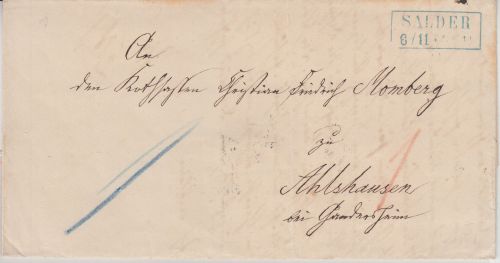 SALDER
6/11
An
den Kothsassen Christian Friedrich Momberg
zu
Ahlshausen
bei Gandersheim